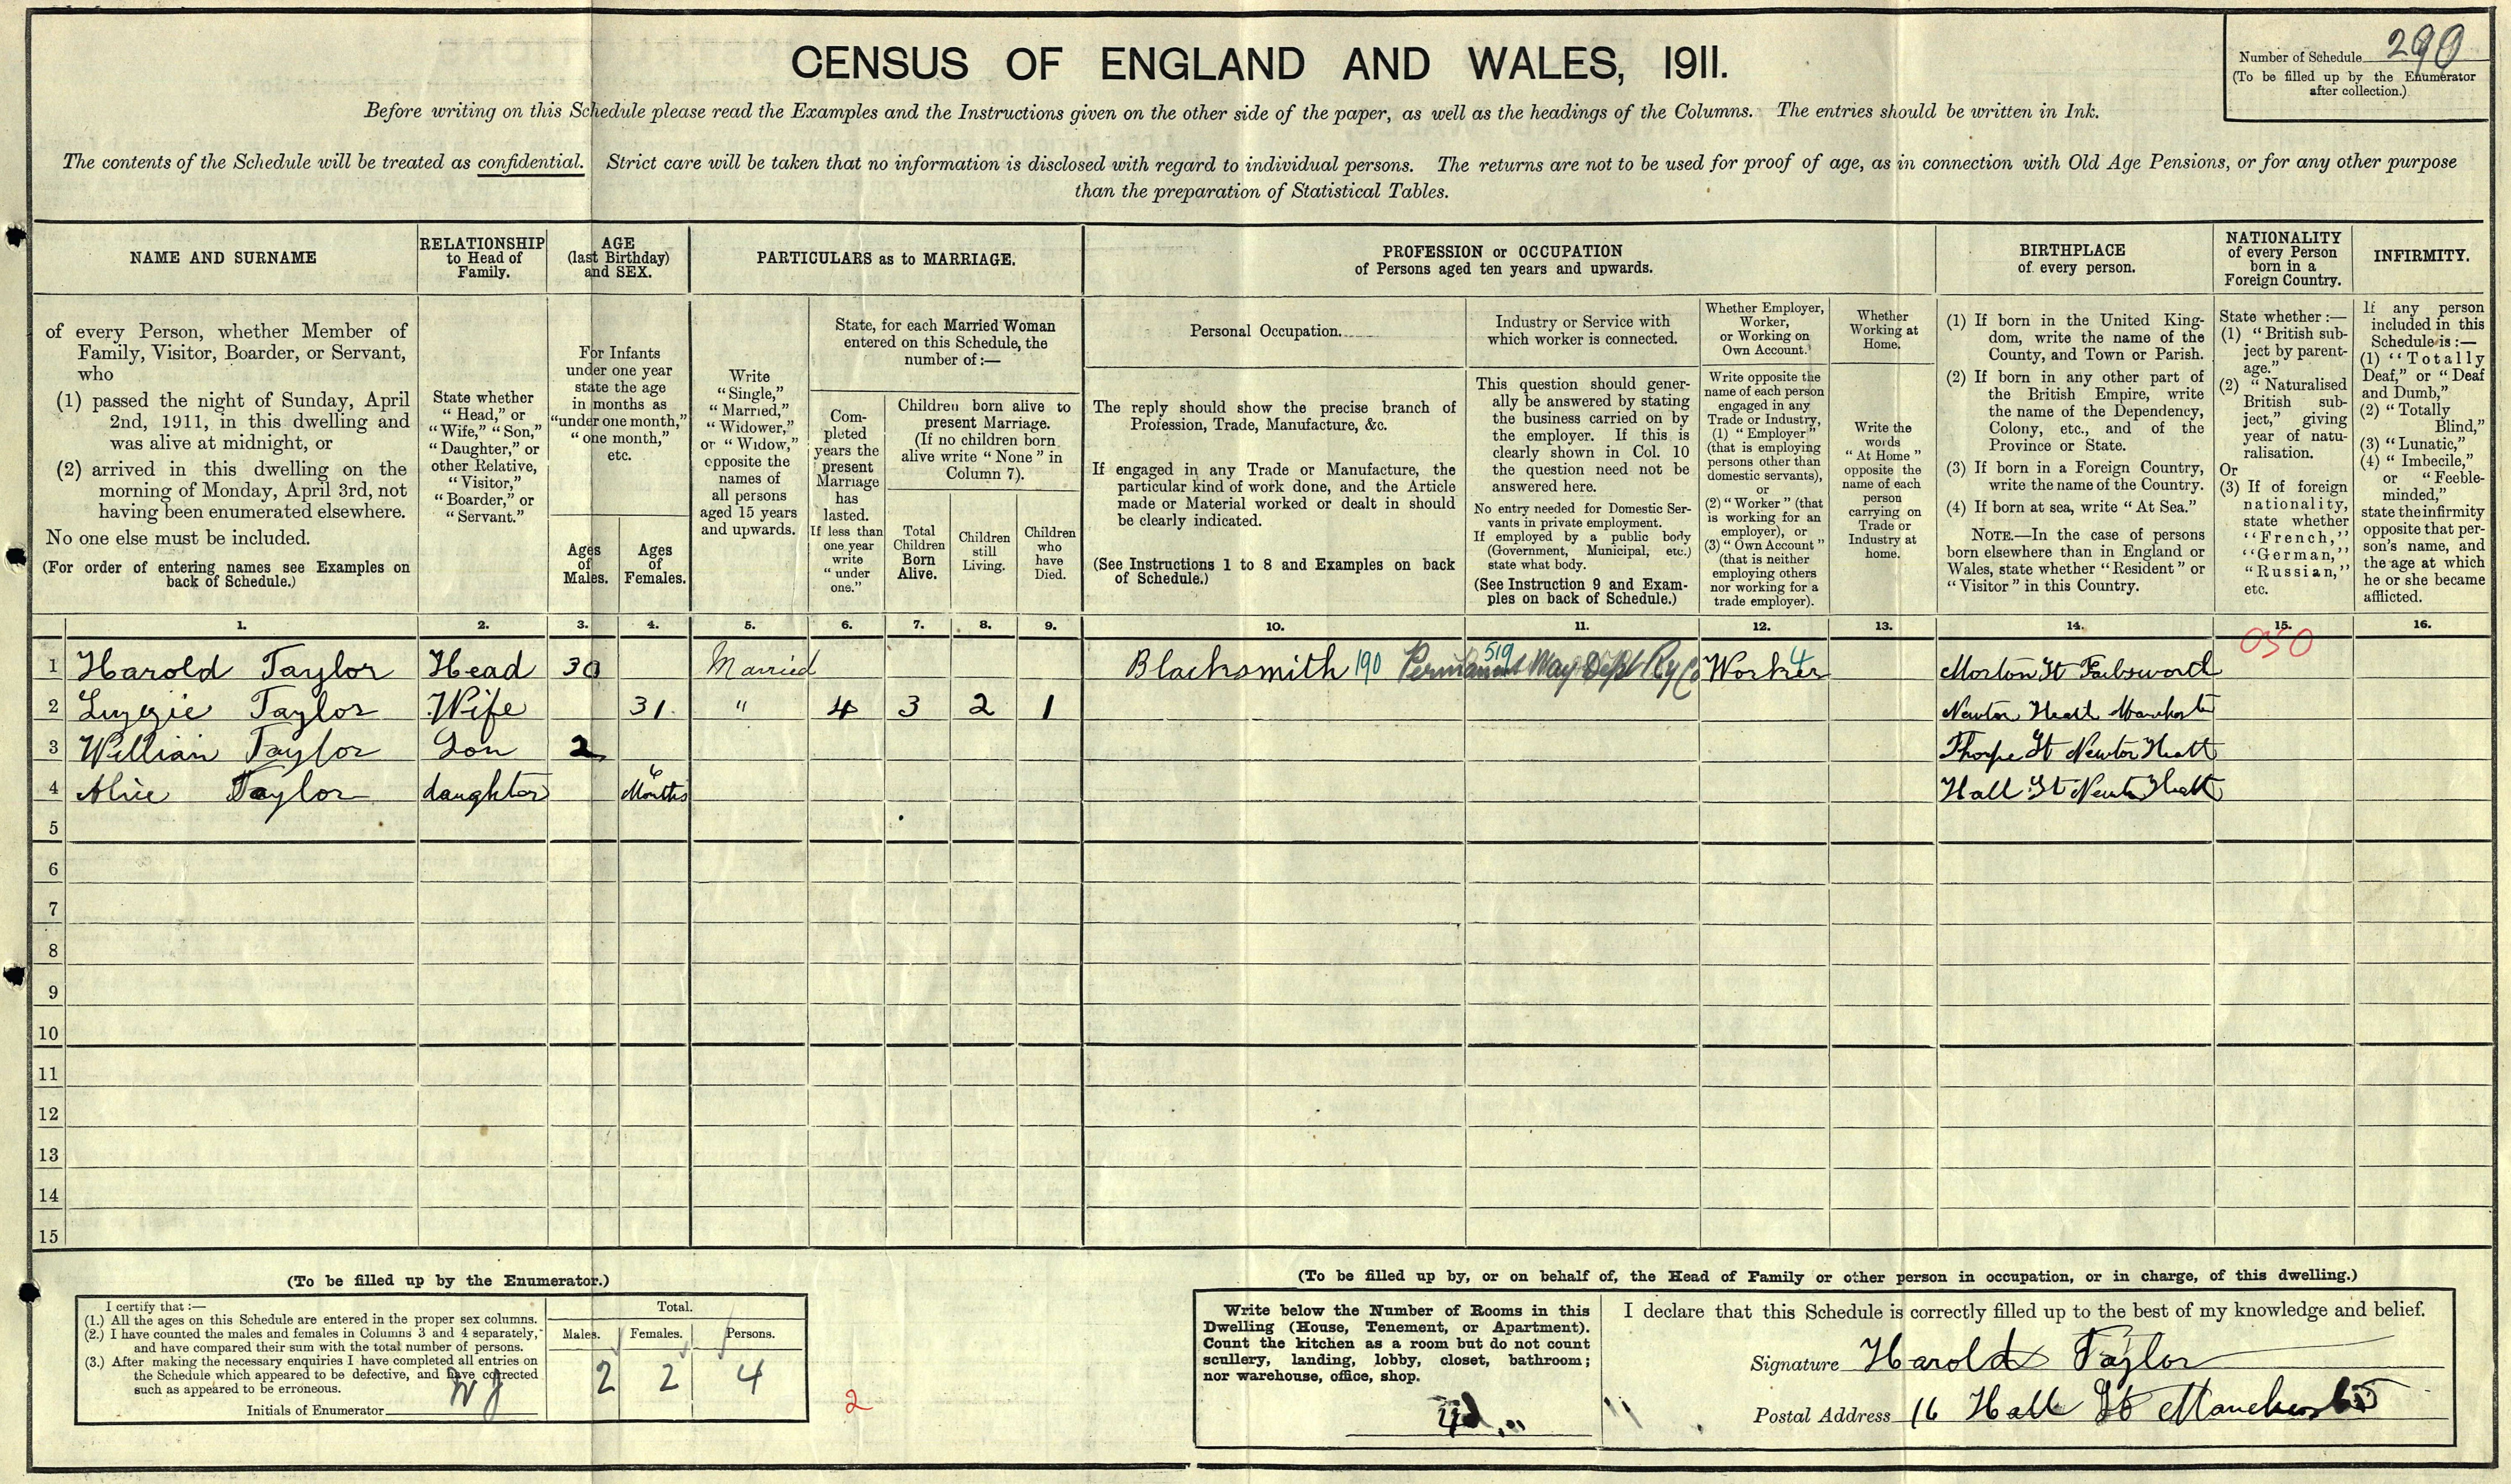 CENSUS OF ENGLAND AND WALES, 1911.
Number of Schedule 290
(To be filled up by the Enumerator
after collection.)
Before writing on this Schedule please read the Examples and the Instructions given on the other side of the paper, as well as the headings of the Columns. The entries should be written in Ink.
The contents of the Schedule will be treated as confidential. Strict care will be taken that no information is disclosed with regard to individual persons. The returns are not to be used for proof of age, as in connection with Old Age Pensions, or for any other purpose
than the preparation of Statistical Tables.
NAME AND SURNAME
of every Person, whether Member of
Family, Visitor, Boarder, or Servant,
who
(1) passed the night of Sunday, April
2nd, 1911, in this dwelling and
was alive at midnight, or
(2) arrived in this dwelling on the
morning of Monday, April 3rd, not
having been enumerated elsewhere.
No one else must be included.
(For order of entering names see Examples on
back of Schedule.)
RELATIONSHIP
to Head of
Family.
State whether
"Head," or
"Wife," "Son,"
"Daughter," or
other Relative,
"Visitor,"
"Boarder," or
"Servant."
AGE
(last Birthday)
and SEX.
For Infants
under one year
state the age
in months as
"under one month,"
"one month,"
etc.
Ages
of
Males.
Ages
of
Females.
PARTICULARS as to MARRIAGE.
Write
"Single,"
"Married,"
"Widower,"
or "Widow,"
opposite the
names of
all persons
aged 15 years
and upwards.
State, for each Married Woman
entered on this Schedule, the
number of:—
Com-
pleted
years the
present
Marriage
has
lasted.
If less than
one year
write
"under
one."
Children born alive to
present Marriage.
(If no children born
alive write "None" in
Column 7).
Total
Children
Born
Alive.
Children
still
Living.
Children
who
have
Died.
PROFESSION or OCCUPATION
of Persons aged ten years and upwards.
Personal Occupation.
The reply should show the precise branch of
Profession, Trade, Manufacture, &c.
If engaged in any Trade or Manufacture, the
particular kind of work done, and the Article
made or Material worked or dealt in should
be clearly indicated.
(See Instructions 1 to 8 and Examples on back
of Schedule.)
Industry or Service with
which worker is connected.
This question should gener-
ally be answered by stating
the business carried on by
the employer. If this is
clearly shown in Col. 10
the question need not be
answered here.
No entry needed for Domestic Ser-
vants in private employment.
If employed by a public body
(Government, Municipal, etc.)
state what body.
(See Instruction 9 and Exam-
ples on back of Schedule.)
Whether Employer,
Worker,
or Working on
Own Account.
Write opposite the
name of each person
engaged in any
Trade or Industry,
(1) "Employer"
(that is employing
persons other than
domestic servants),
or
(2) "Worker" (that
is working for an
employer), or
(3) "Own Account"
(that is neither
employing others
nor working for a
trade employer).
Whether
Working at
Home.
Write the
words
"At Home"
opposite the
name of each
person
carrying on
Trade or
Industry at
home.
BIRTHPLACE
of every person.
(1) If born in the United King-
dom, write the name of the
County, and Town or Parish.
(2) If born in any other part of
the British Empire, write
the name of the Dependency,
Colony, etc., and of the
Province or State.
(3) If born in a Foreign Country,
write the name of the Country.
(4) If born at sea, write "At Sea."
NOTE.—In the case of persons
born elsewhere than in England or
Wales, state whether "Resident" or
"Visitor" in this Country.
NATIONALITY
of every Person
born in a
Foreign Country.
State whether :—
(1) "British sub-
ject by parent-
age."
(2) "Naturalised
British sub-
ject," giving
year of natu-
ralisation.
Or
(3) If of foreign
nationality,
state whether
"French,"
"German,"
"Russian,"
etc.
INFIRMITY.
If any person
included in this
Schedule is:—
(1) "Totally
Deaf," or "Deaf
and Dumb,"
(2) "Totally
Blind,"
(3) "Lunatic,"
(4) "Imbecile,"
or "Feeble-
minded,"
state the infirmity
opposite that per-
son's name, and
the age at which
he or she became
afflicted.
1. 2. 3. 4. 5. 6. 7. 8. 9. 10. 11. 12. 13. 14. 15. 16.
050
1 Harold Taylor Head 30 Married Blacksmith 190 Permanent Way Dept Ry Co 519 Worker 4 Morton St Failsworth
2 Lizzie Taylor Wife 31 " 4 3 2 1 Newton Heath Manchester
3 William Taylor Son 2 Thorpe St Newton Heath
4 Alice Taylor daughter 6 Months Hall St Newton Heath
5
6
7
8
9
10
11
12
13
14
15
(To be filled up by the Enumerator.)
I certify that :—
(1.) All the ages on this Schedule are entered in the proper sex columns.
(2.) I have counted the males and females in Columns 3 and 4 separately,
and have compared their sum with the total number of persons.
(3.) After making the necessary enquiries I have completed all entries on
the Schedule which appeared to be defective, and have corrected
such as appeared to be erroneous.
Initials of Enumerator WJ
Total.
Males. Females. Persons.
2 2 4
2
(To be filled up by, or on behalf of, the Head of Family or other person in occupation, or in charge, of this dwelling.)
Write below the Number of Rooms in this
Dwelling (House, Tenement, or Apartment).
Count the kitchen as a room but do not count
scullery, landing, lobby, closet, bathroom;
nor warehouse, office, shop.
I declare that this Schedule is correctly filled up to the best of my knowledge and belief.
Signature Harold Taylor
Postal Address 16 Hall St Manchester